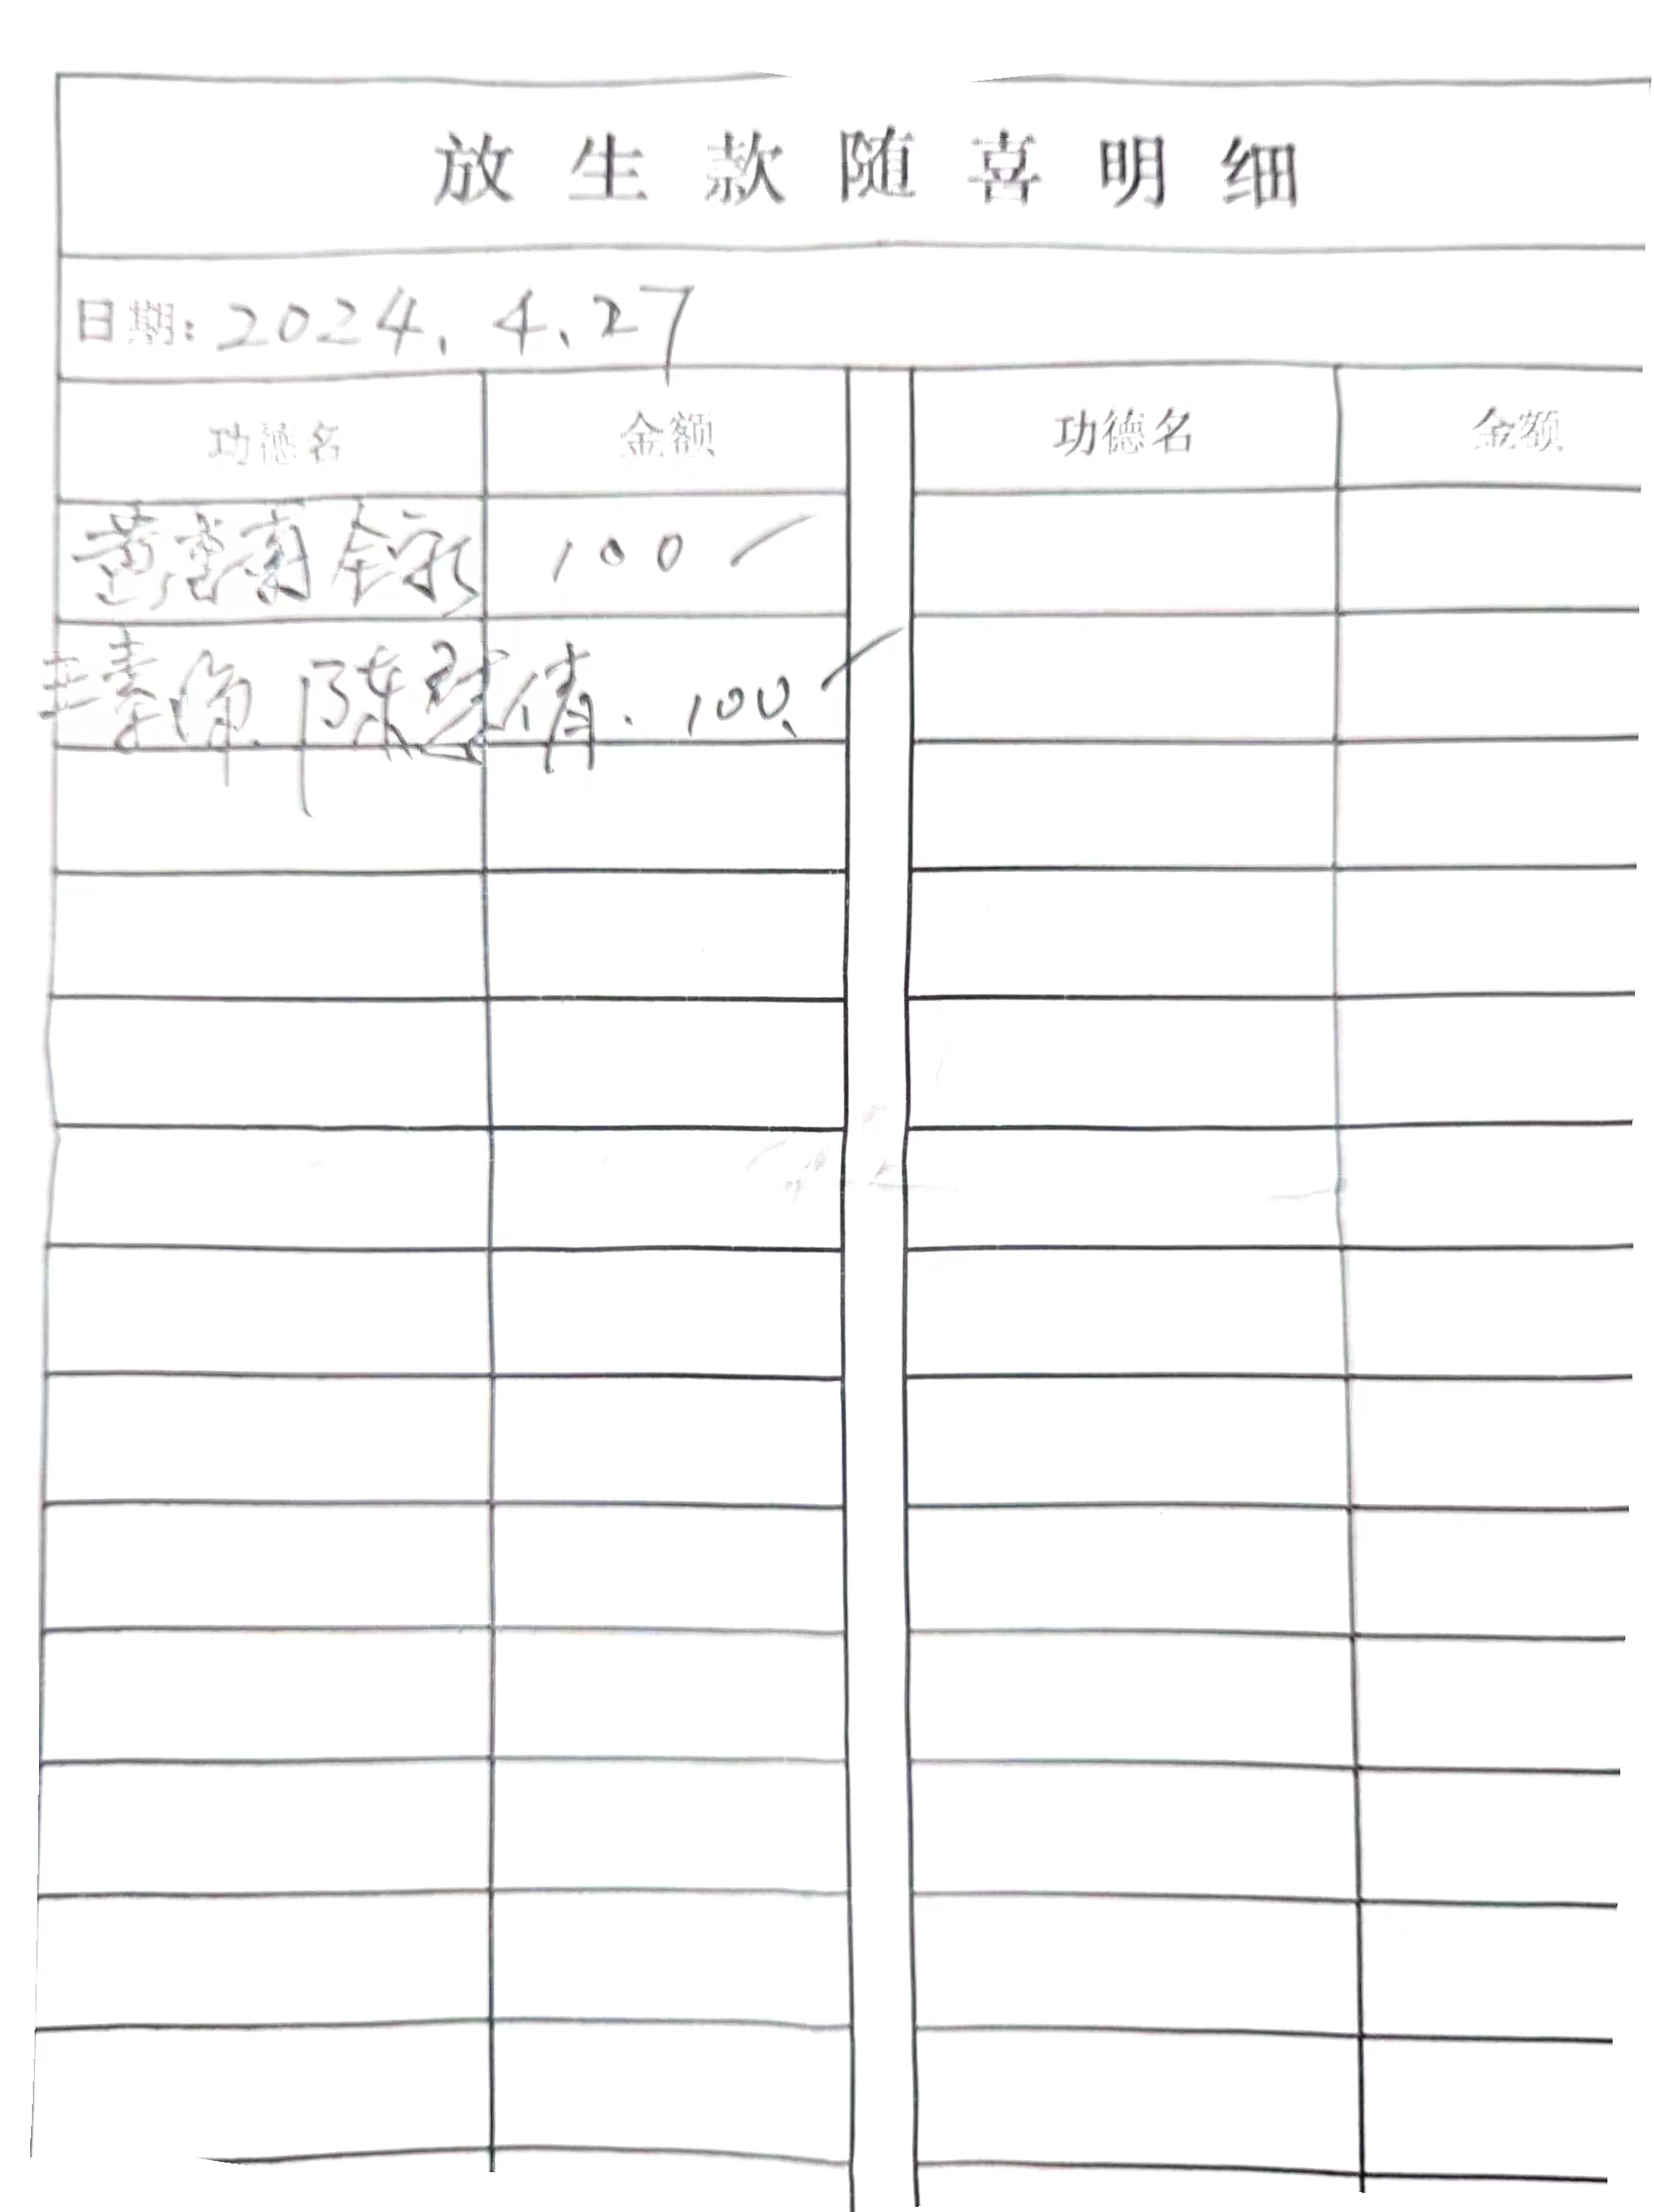 放生款随喜明细
日期: 2024.4.27
功德名 金额 功德名 金额
黄 全家 100
王素 陈慧倩. 100.